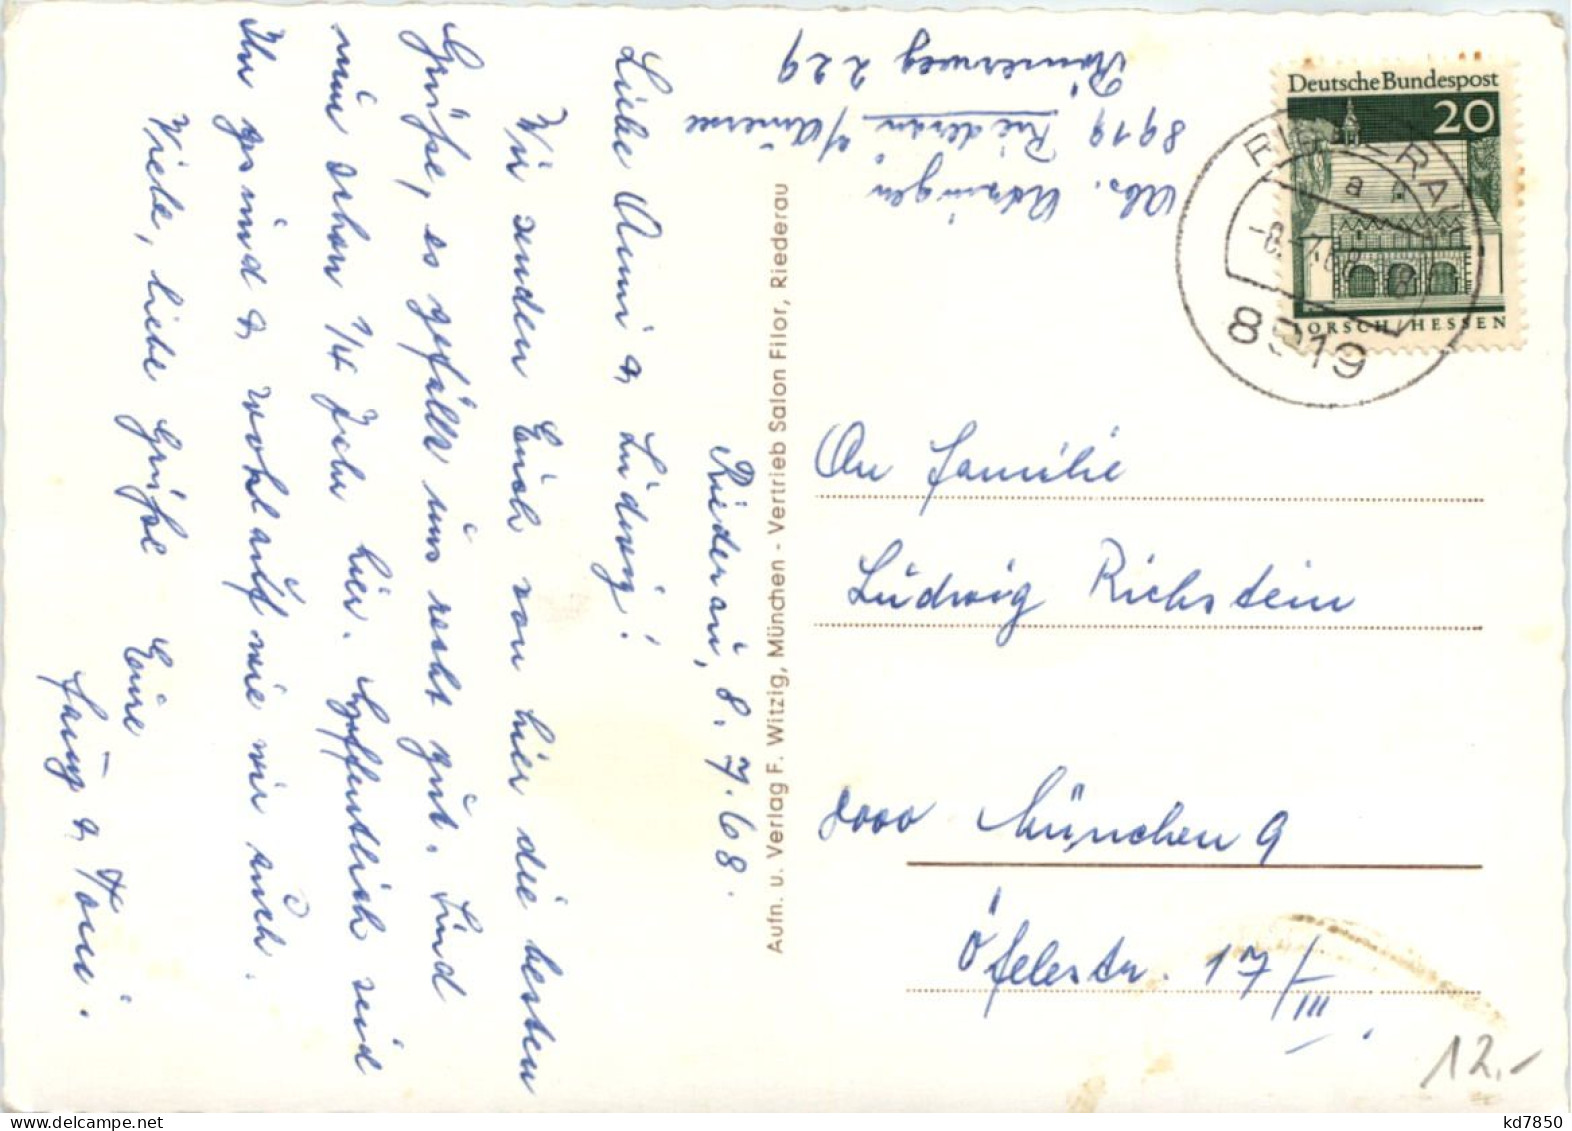 Riederau, 8.7.68.
Liebe Anni & Ludwig!
Wir senden Euch von hier die besten
Grüße, es gefällt uns recht gut. Sind
nun schon 1/4 Jahr hier. Hoffentlich seid
Ihr gesund & wohlauf wie wir auch.
Viele, liebe Grüße Eure
& Toni.
Abs.
8919 Riederau a/Ammersee
Römerweg 229
Aufn. u. Verlag F. Witzig, München - Vertrieb Salon Filor, Riederau
Deutsche Bundespost
20
LORSCH/HESSEN
RIEDERAU
a
-8.-7.68-8
8919
An Familie
Ludwig Richstein
8000 München 9
Öfelestr. 17/III.
12.-
kd7850